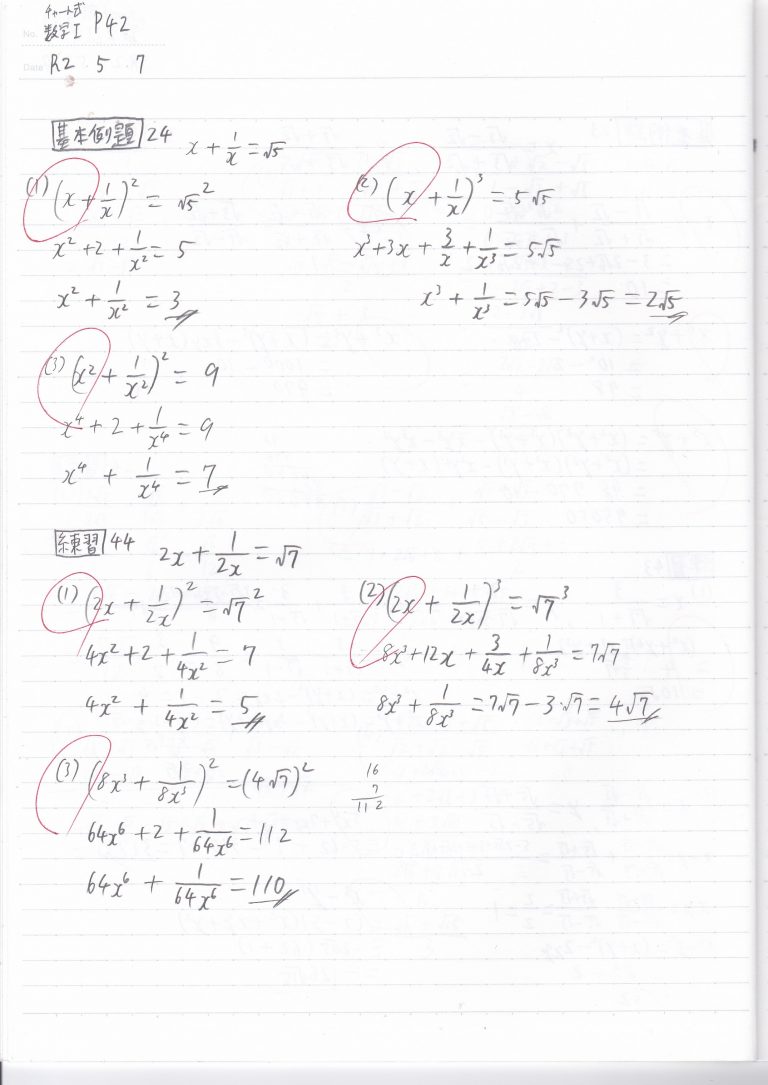 チャート式
数学I P42
No.
Date R2 5 7
基本例題 24 x + 1/x = √5
(1) (x + 1/x)² = √5²
x² + 2 + 1/x² = 5
x² + 1/x² = 3
(2) (x + 1/x)³ = 5√5
x³ + 3x + 3/x + 1/x³ = 5√5
x³ + 1/x³ = 5√5 − 3√5 = 2√5
(3) (x² + 1/x²)² = 9
x⁴ + 2 + 1/x⁴ = 9
x⁴ + 1/x⁴ = 7
練習 44 2x + 1/2x = √7
(1) (2x + 1/2x)² = √7²
4x² + 2 + 1/4x² = 7
4x² + 1/4x² = 5
(2) (2x + 1/2x)³ = √7³
8x³ + 12x + 3/4x + 1/8x³ = 7√7
8x³ + 1/8x³ = 7√7 − 3·√7 = 4√7
(3) (8x³ + 1/8x³)² = (4√7)²
64x⁶ + 2 + 1/64x⁶ = 112
64x⁶ + 1/64x⁶ = 110
16
7
112